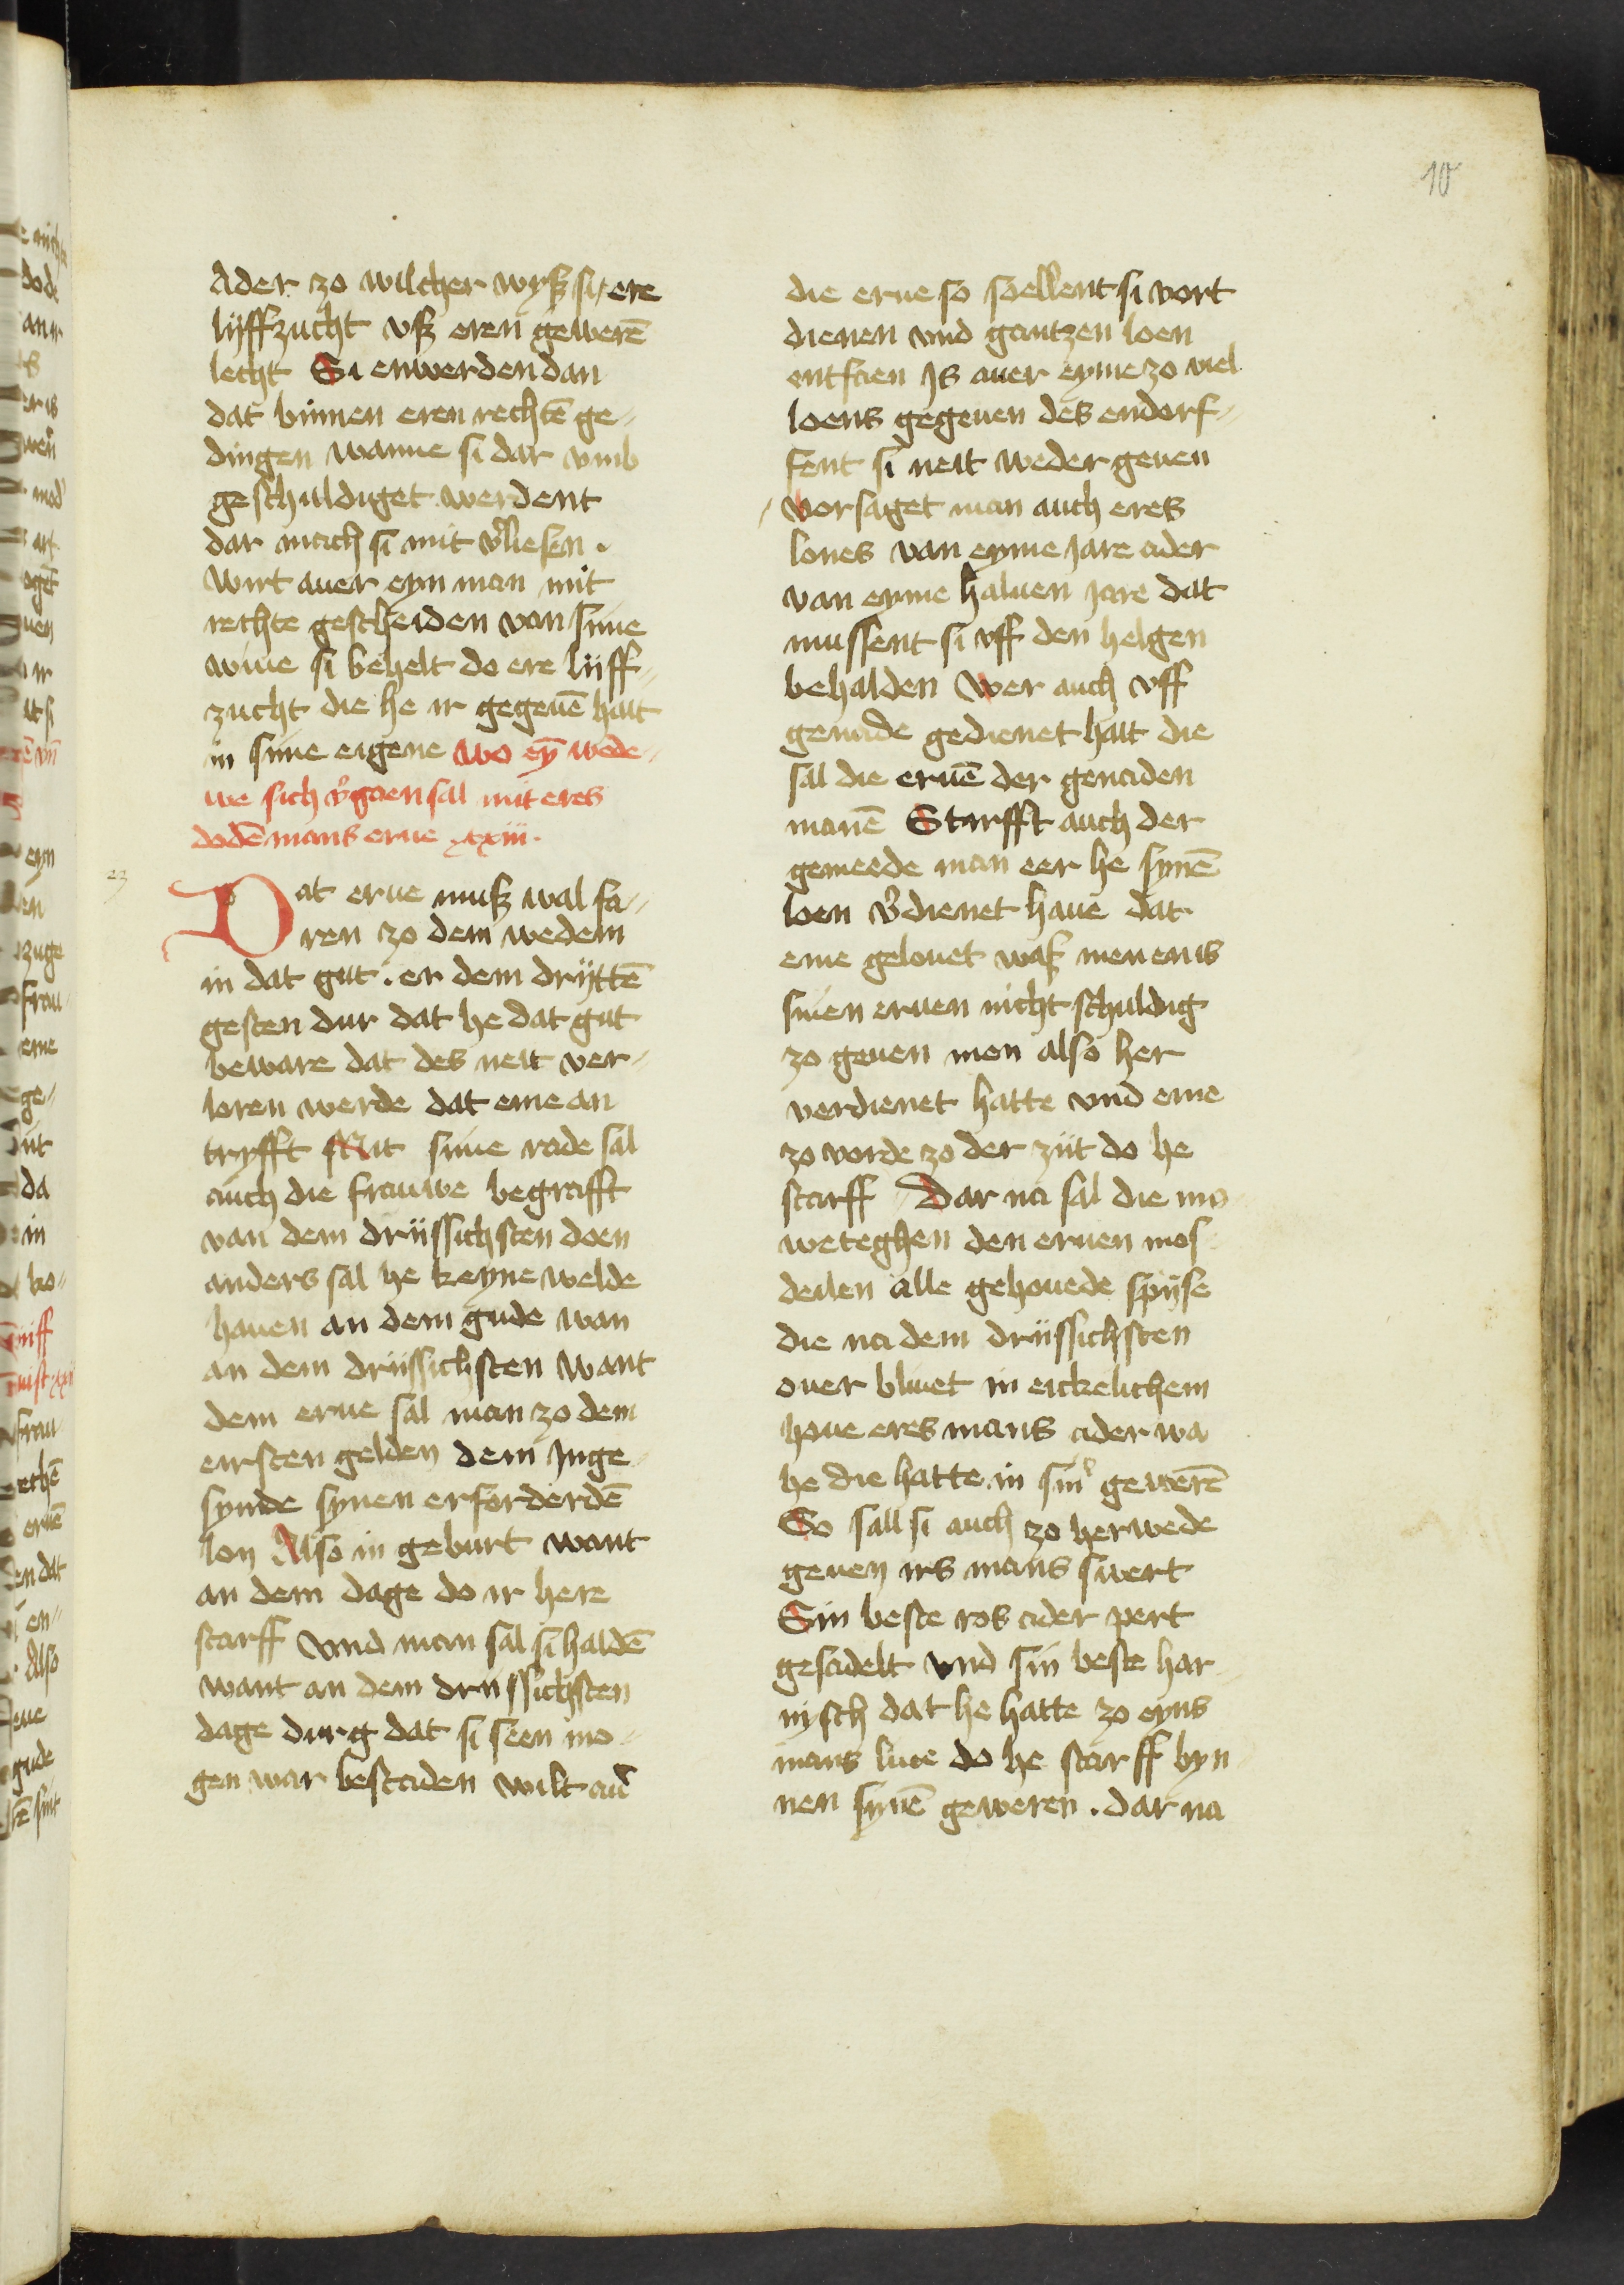 10
Ader zo wilcher wyß si ere
lijffzucht vß eren gewerē
lecht Si enwerden dan
dat binnen eren rechtē ge-
dingen wanne si dar vmb
geschuldiget werdent
dar mach si mit v̓liesen .
Wirt auer eyn man mit
rechte gescheiden van sime
wiue si behelt do ere lijff-
zucht die he ir gegeuē hait
in sime eigene wo eȳ wede-
we sich v̓gaen sal mit eres
dodē mans erue xxiii.
23
Dat erue muß wal fa-
ren zo dem wedem
in dat gut . er dem dryttē
gesten dur dat he dat gut
beware dat des neit ver-
loren werde dat eme an
tryfft Mit sime rade sal
auch die frauwe begrafft
van dem drijssichsten doen
anders sal he keyne welde
hauen an dem gude wan
an dem drijssichsten want
dem erue sal man zo dem
eirsten gelden dem Inge-
synde synen erforderdē
lon Also in geburt want
an dem dage do ir here
starff Vnd man sal si haldē
want an dem drijssichsten
dage durg dat si seen mo-
gen war bestaden wilt aūͥ
die erue so soellent si vort
dienen vnd gantzen loen
entfaen Is auer eyme zo viel
loens gegeuen des endorf-
fent si neit weder geuen
vorsaget man auch eres
lones van eyme Jare ader
van eyme haluen Jare dat
mussent si vff den helgen
behalden Wer auch vff
genade gedienet hait die
sal die eruē der genaden
manē Starfft auch der
gemeede man eer he synē
loen v̓dienet haue dat
eme gelouet waß men enis
sinen eruen nicht schuldig
zo geuen men also her
verdienet hatte vnd eme
zo vorde zo der zijt do he
starff Dar na sal die mo
weteghen den eruen mos
deilen alle gehouede spijse
die na dem drijssichsten
ouer bliuet in eickelichem
houe eres mans ader wa
he die hatte in sin̓ gewerē
So sall si auch zo herwede
geuen irs mans swert
Sin beste ros ader pert
gesadelt vnd sin beste har-
nysch dat he hatte zo eyns
mans liue do he starff byn-
nen synē geweren . dar na